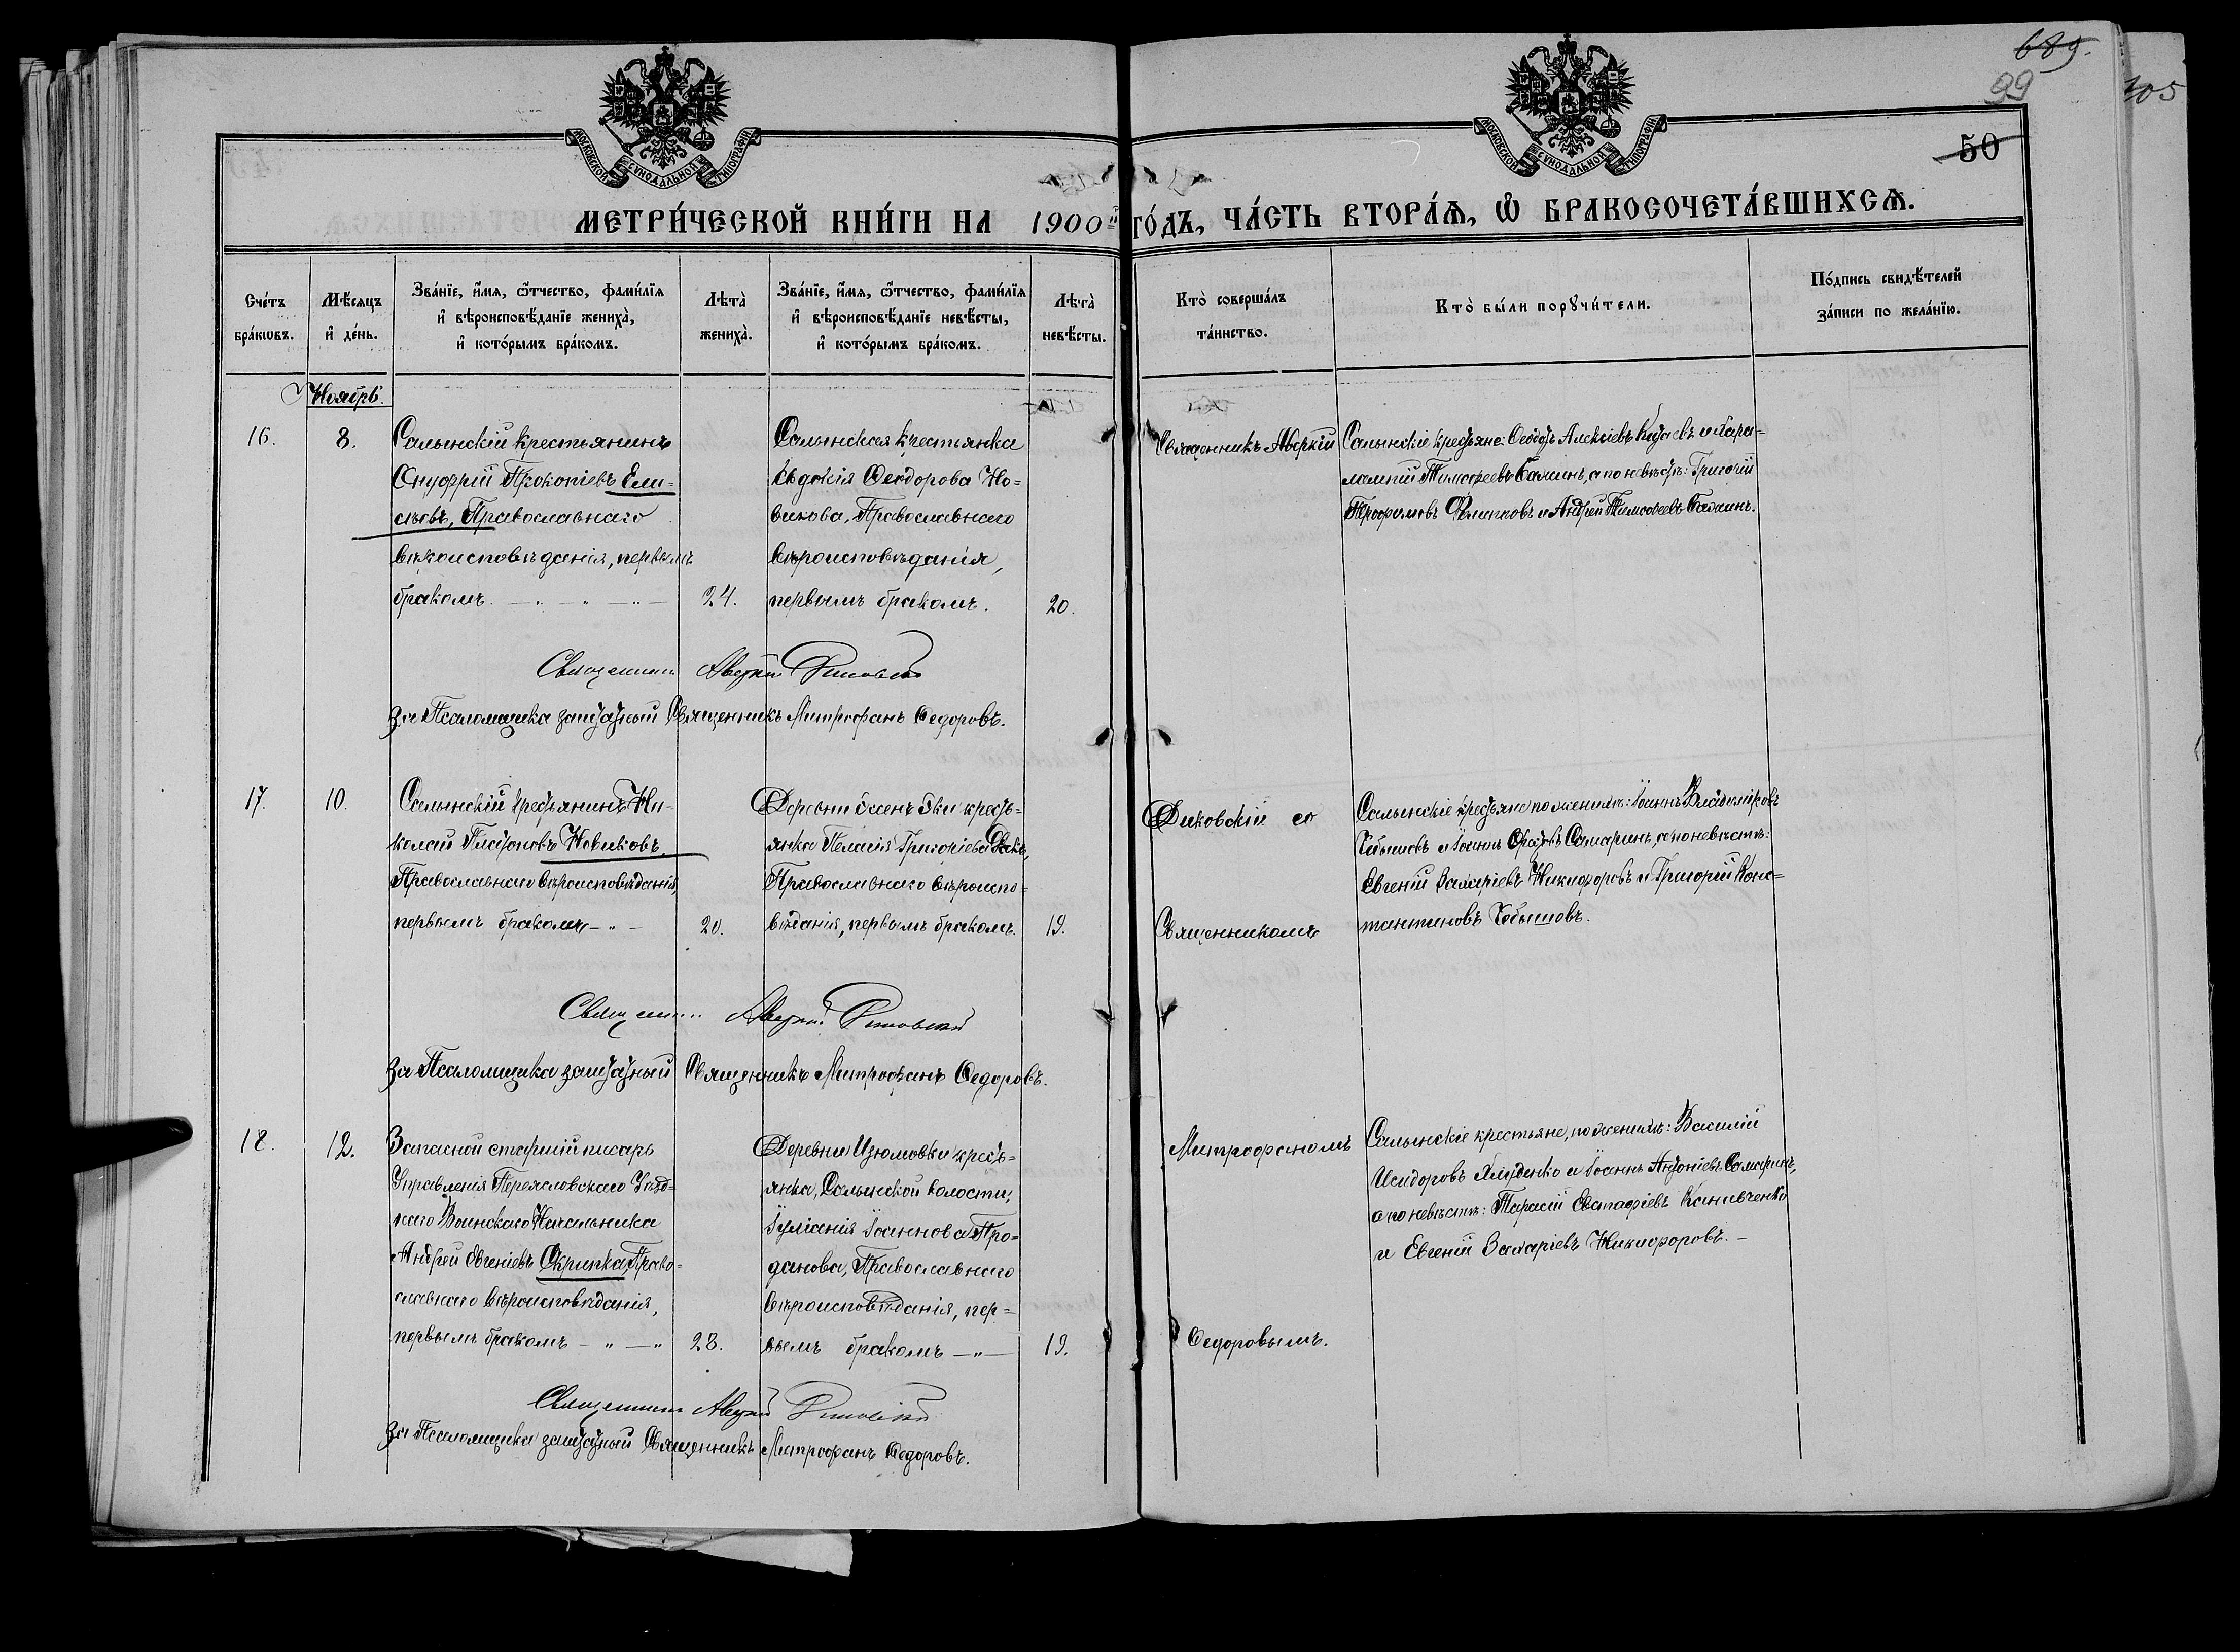 689.
99
105
50
МОСКОВСКОЙ СѴНОДАЛЬНОЙ ТИПОГРАФІИ
МОСКОВСКОЙ СѴНОДАЛЬНОЙ ТИПОГРАФІИ
МЕТРИ́ЧЕСКОЙ КНИ́ГИ НА 1900й ГО́ДЪ, ЧА́СТЬ ВТОРА́Ѧ, Ѡ҆ БРАКОСОЧЕТА́ВШИХСѦ.
Сче́тъ бра́кѡвъ.
Мѣ́сяцъ и҆ де́нь.
Зва́нїе, и҆́мя, ѻ҆́тчество, фами́лїя
и҆ вѣроисповѣ́данїе жениха̀,
и҆ кото́рымъ бра́комъ.
Лѣта̀ жениха̀.
Зва́нїе, и҆́мя, ѻ҆́тчество, фами́лїя
и҆ вѣроисповѣ́данїе невѣ́сты,
и҆ кото́рымъ бра́комъ.
Лѣта̀ невѣ́сты.
Кто̀ соверша́лъ
та́инство.
Кто̀ бы́ли порꙋчи́тели.
По́дпись свидѣ́телей
за́писи по жела́нїю.
Ноябрь.
16.
8.
Салынскій крестьянинъ
Онуфрій Прокопіевъ Ели=
сѣевъ, Православнаго
вѣроисповѣданія, первымъ
бракомъ. — " — " — " —
24.
Салынская крестьянка
Евдокія Ѳеодорова Но=
викова, Православнаго
вѣроисповѣданія,
первымъ бракомъ.
20.
Священникъ Аверкій
Салынскіе крестьяне: Ѳеодотъ Алексіевъ и Хара=
лампій Тимоѳеевъ а по невѣстѣ: Григорій
Трофимовъ Филиповъ и Андрей Тимоѳеевъ
Священникъ Аверкій Диковскій
За Псаломщика заштатный Священникъ Митрофанъ Ѳедоровъ.
17.
10.
Салынскій крестьянинъ Ни=
колай Платоновъ Новиковъ
Православнаго вѣроисповѣданія,
первымъ бракомъ — " —
20.
Деревни кресть=
янка Пелагія Григоріева
Православнаго вѣроиспо=
вѣданія, первымъ бракомъ.
19.
Диковскій со
Священникомъ
Салынскіе крестьяне по женихѣ: Іоаннъ Владиміровъ
Чебышовъ и Іоаннъ Самаринъ, а по невѣстѣ:
Евгеній Захаріевъ Никифоровъ и Григорій Конс=
тантиновъ Чебышовъ.
Священникъ Аверкій Диковскій
За Псаломщика заштатный Священникъ Митрофанъ Ѳедоровъ.
18.
12.
Запасной старшій писарь
Управленія Переясловскаго Уѣзд=
наго Воинскаго Начальника
Андрей Евгеніевъ Скрипка, Право=
славнаго вѣроисповѣданія,
первымъ бракомъ — " — "
28.
Деревни Изюмовки кресть=
янка, Салынской волости,
Іуліанія Іоаннова Про=
данова, Православнаго
вѣроисповѣданія, пер=
вымъ бракомъ — " —
19.
Митрофаномъ
Ѳедоровымъ.
Салынскіе крестьяне, по женихѣ: Василій
Исидоровъ и Іоаннъ Антоніевъ Самаринъ,
а по невѣстѣ: Тарасій Евстафіевъ Каневченко
и Евгеній Захаріевъ Никифоровъ. —
Священникъ Аверкій Диковскій
За Псаломщика заштатный Священникъ Митрофанъ Ѳедоровъ.